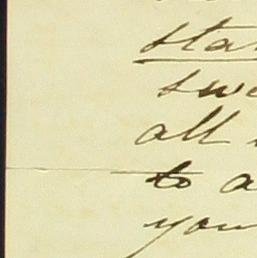 sta
swe
all
to a
you